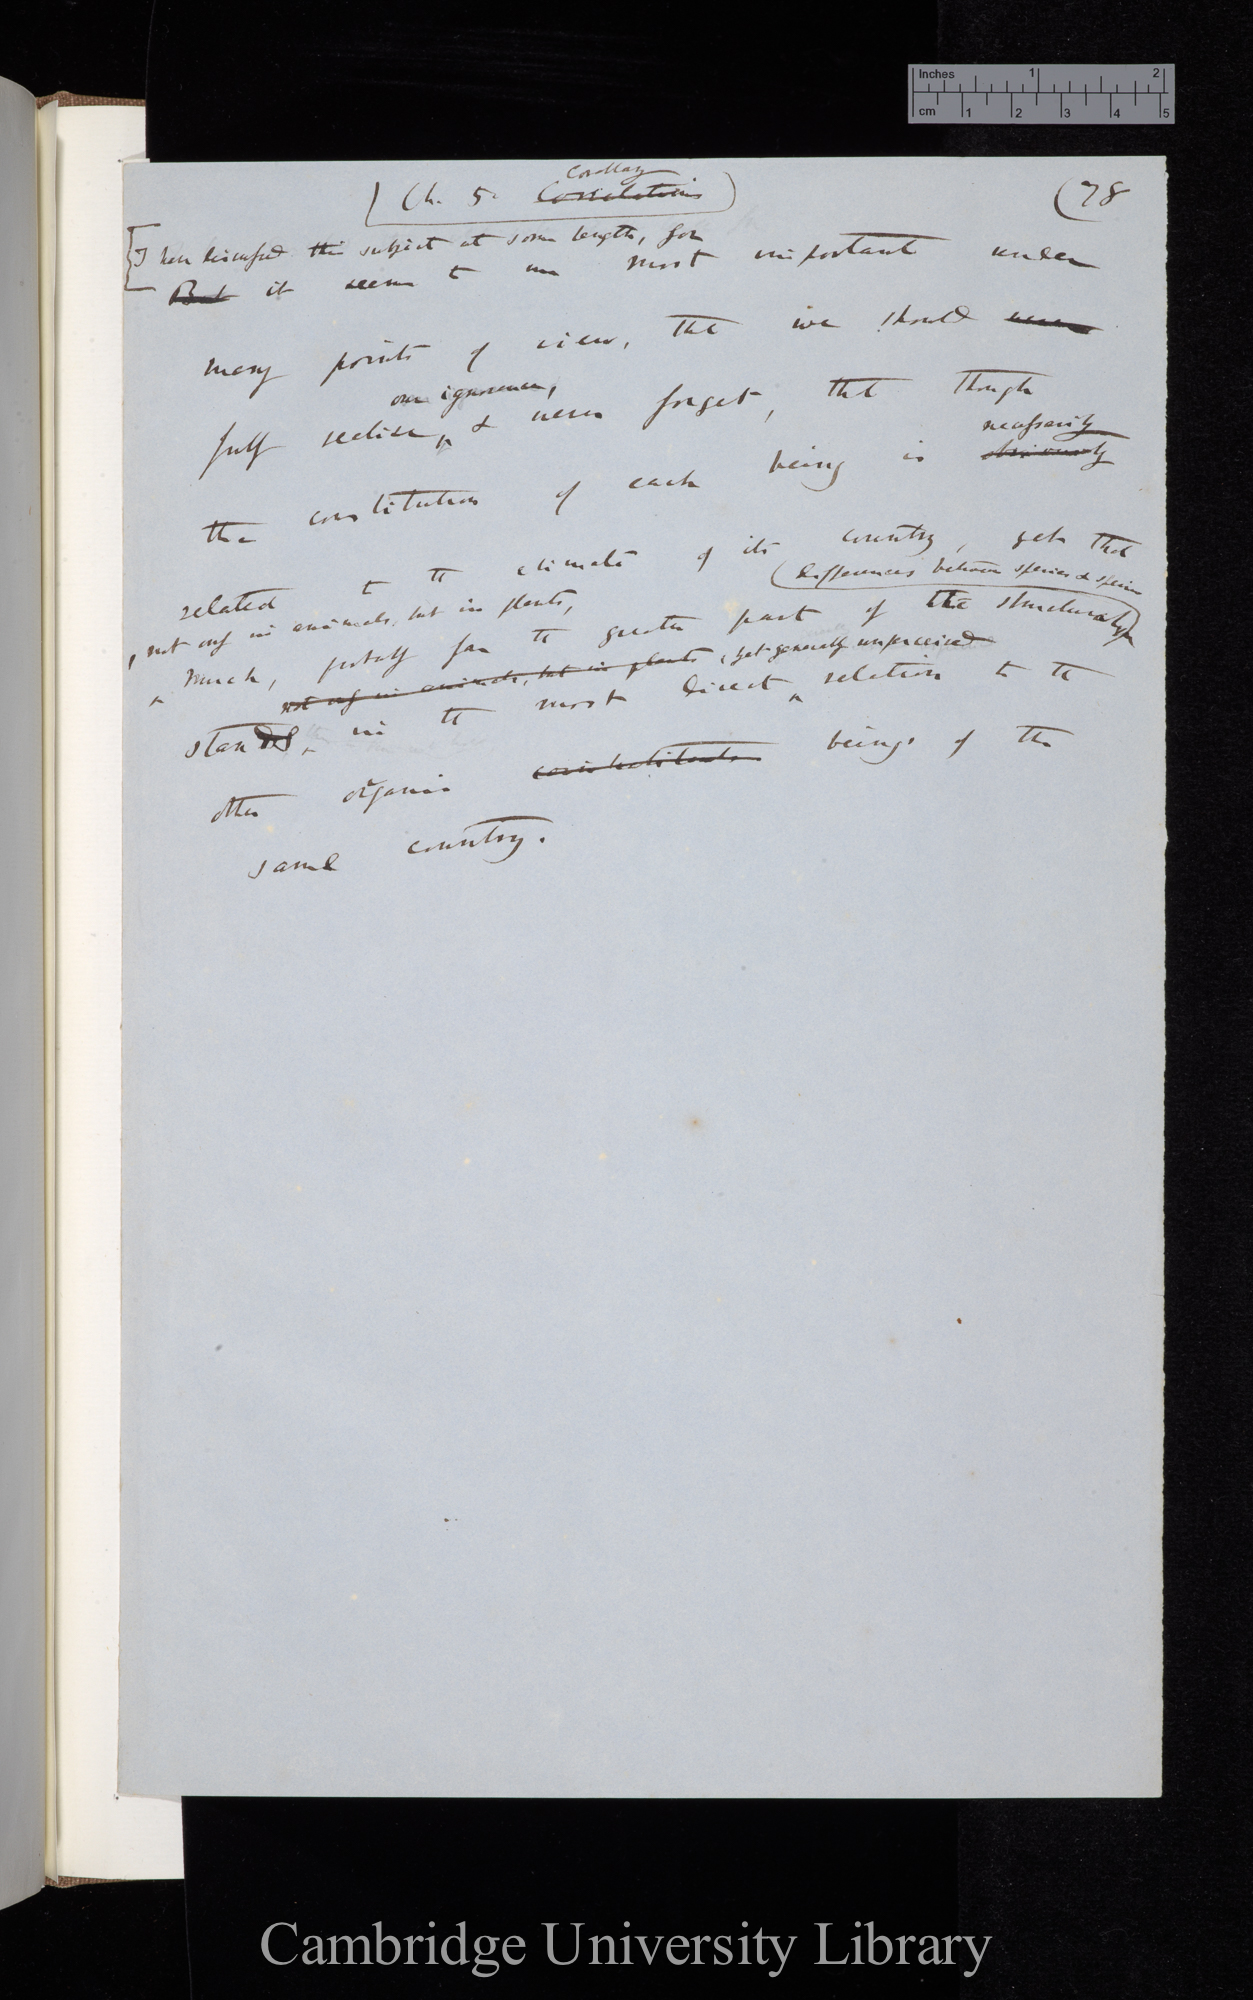 Inches 1 2
cm 1 2 3 4 5
Corollary
(Ch. 5. Correlations) (78
[I have discussed this subject at some length, for
But it seems to me most important under
many points of view, that we should never
our ignorance,
fully realise & never forget, that though
necessarily
the constitution of each being is obviously
related to the climate of its country, yet that
(differences between species & species
, not only in animals, but in plants,
much, probably far the greater part of the structural
not only in animals, but in plants, yet generally unperceived
stands in the most direct relation to the
other organic coinhabitants beings of the
same country.
Cambridge University Library